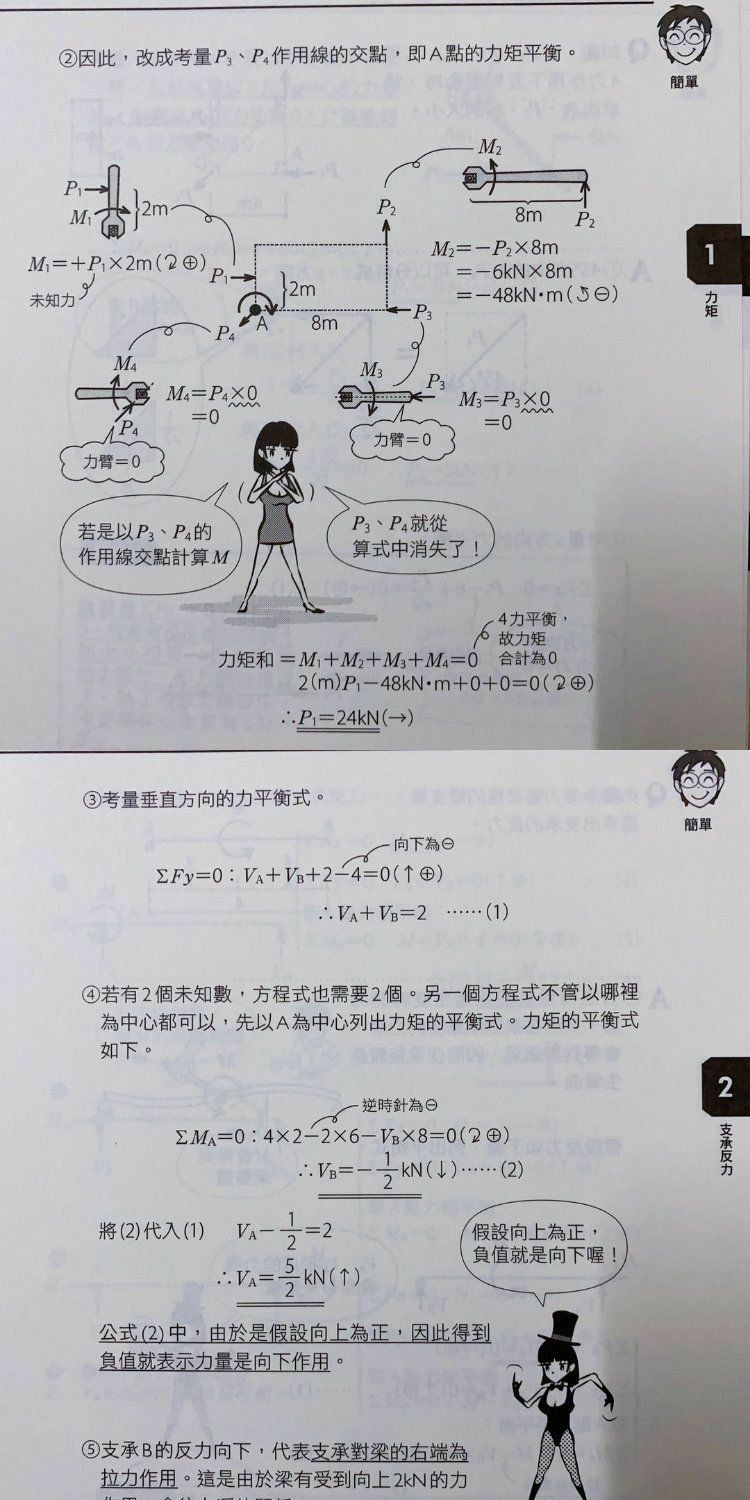 ②因此，改成考量P₃、P₄作用線的交點，即A點的力矩平衡。
簡單
P₁
M₁
2m
M₁=+P₁×2m(↻⊕)
未知力
P₁
P₂
2m
A
8m
P₃
P₄
M₂
8m
P₂
M₂=−P₂×8m
=−6kN×8m
=−48kN·m(↺⊖)
1
力矩
M₄
P₄
M₄=P₄×0
=0
力臂=0
M₃
P₃
M₃=P₃×0
=0
力臂=0
若是以P₃、P₄的
作用線交點計算M
P₃、P₄就從
算式中消失了！
4力平衡，
故力矩
合計為0
力矩和=M₁+M₂+M₃+M₄=0
2(m)P₁−48kN·m+0+0=0(↻⊕)
∴P₁=24kN(→)
③考量垂直方向的力平衡式。
簡單
向下為⊖
ΣFy=0：VA+VB+2−4=0(↑⊕)
∴VA+VB=2 ……(1)
④若有2個未知數，方程式也需要2個。另一個方程式不管以哪裡
為中心都可以，先以A為中心列出力矩的平衡式。力矩的平衡式
如下。
2
支承反力
逆時針為⊖
ΣMA=0：4×2−2×6−VB×8=0(↻⊕)
∴VB=−1/2kN(↓)……(2)
將(2)代入(1) VA−1/2=2
∴VA=5/2kN(↑)
假設向上為正，
負值就是向下喔！
公式(2)中，由於是假設向上為正，因此得到
負值就表示力量是向下作用。
⑤支承B的反力向下，代表支承對梁的右端為
拉力作用。這是由於梁有受到向上2kN的力